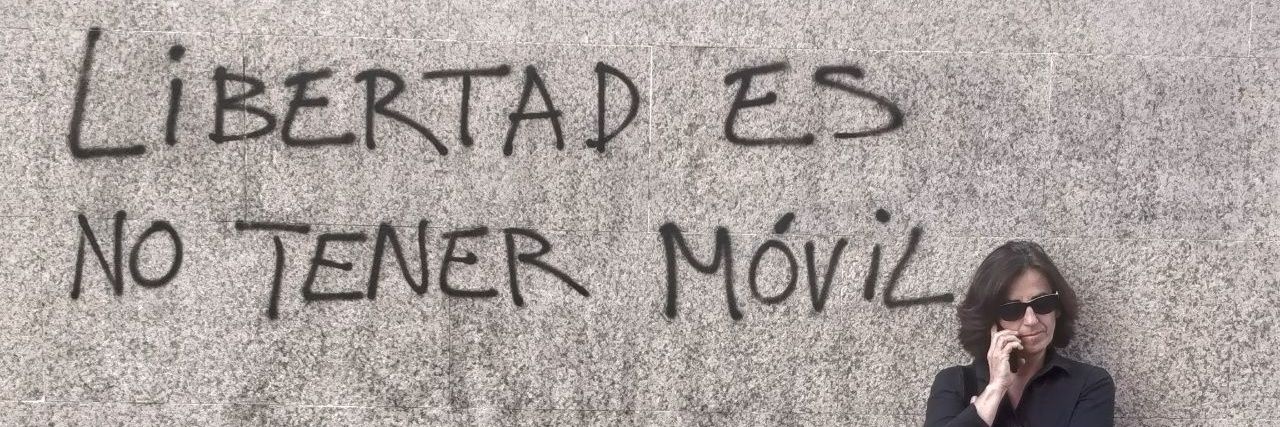 LiBERTAD ES
NO TENER MÓViL